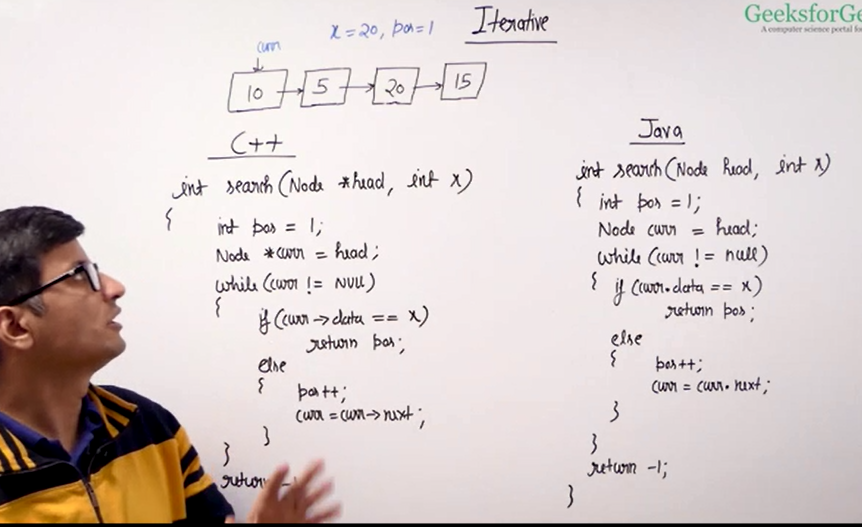 GeeksforGe
A computer science portal fo
Iterative
x = 20, pos = 1
curr
10 5 20 15
C++
int search(Node *head, int x)
{
int pos = 1;
Node *curr = head;
while (curr != NULL)
{
if (curr → data == x)
return pos;
else
{
pos++;
curr = curr → next;
}
}
return -1
Java
int search(Node head, int x)
{ int pos = 1;
Node curr = head;
while (curr != null)
{ if (curr.data == x)
return pos;
else
{
pos++;
curr = curr.next;
}
}
return -1;
}